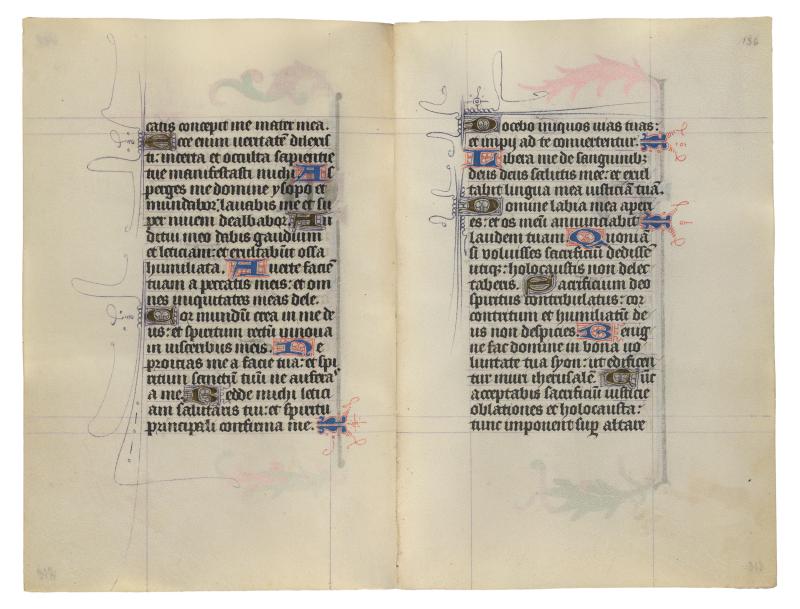 catis concepit me mater mea.
Ecce enim veritatē dilexis
ti: incerta et occulta sapientie
tue manifestasti michi. As
perges me domine ysopo et
mundabor, lavabis me et su
per nivem dealbabor. Au
ditui meo dabis gaudium
et leticiam: et exultabūt ossa
humiliata. Averte faciē
tuam a peccatis meis: et om
nes iniquitates meas dele.
Cor mundū crea in me de
us: et spiritum rectū innova
in visceribus meis. Ne
proicias me a facie tua: et spi
ritum sanctū tuū ne auferas
a me. Redde michi letici
am salutaris tui: et spiritu
principali confirma me.
136
Docebo iniquos vias tuas:
et impij ad te convertentur.
Libera me de sanguinibz
deus deus salutis mee: et exul
tabit lingua mea iusticiā tuā.
Domine labia mea aperi
es: et os meū annunciabit
laudem tuam. Quoniā
si voluisses sacrificiū dedisse
utiqz: holocaustis non delec
taberis. Sacrificium deo
spiritus contribulatus: cor
contritum et humiliatū de
us non despicies. Benig
ne fac domine in bona vo
luntate tua syon: ut edificen
tur muri iherusalē. Tūc
acceptabis sacrificiū iusticie
oblationes et holocausta:
tunc imponent sup altare